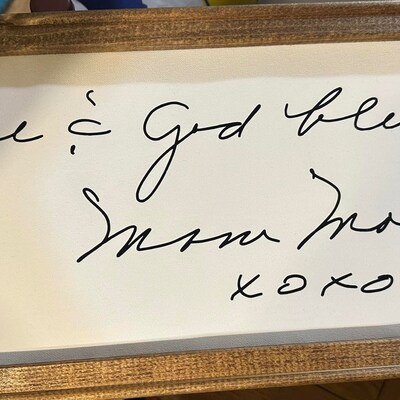 e & God ble
Mom Mo
xoxo